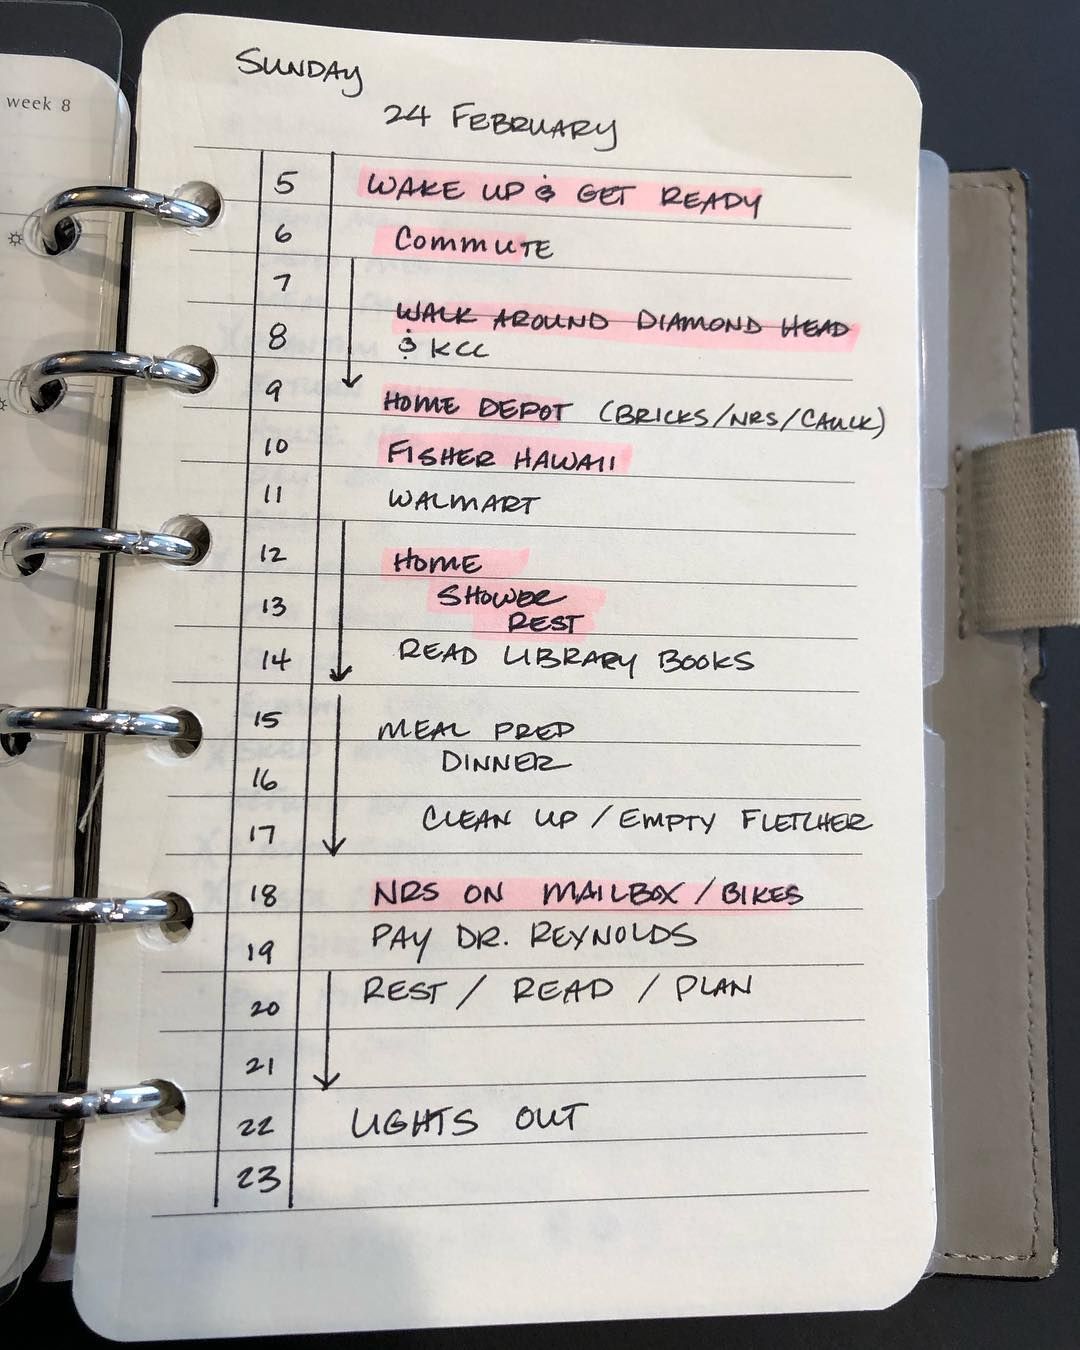 week 8
SUNDAY
24 FEBRUARY
5 WAKE UP & GET READY
6 COMMUTE
7
WALK AROUND DIAMOND HEAD
8 & KCC
9 HOME DEPOT (BRICKS/NRS/CAULK)
10 FISHER HAWAII
11 WALMART
12 HOME
SHOWER
13
REST
14 READ LIBRARY BOOKS
15 MEAL PREP
DINNER
16
17 CLEAN UP / EMPTY FLETCHER
18 NRS ON MAILBOX / BIKES
19 PAY DR. REYNOLDS
20 REST / READ / PLAN
21
22 LIGHTS OUT
23